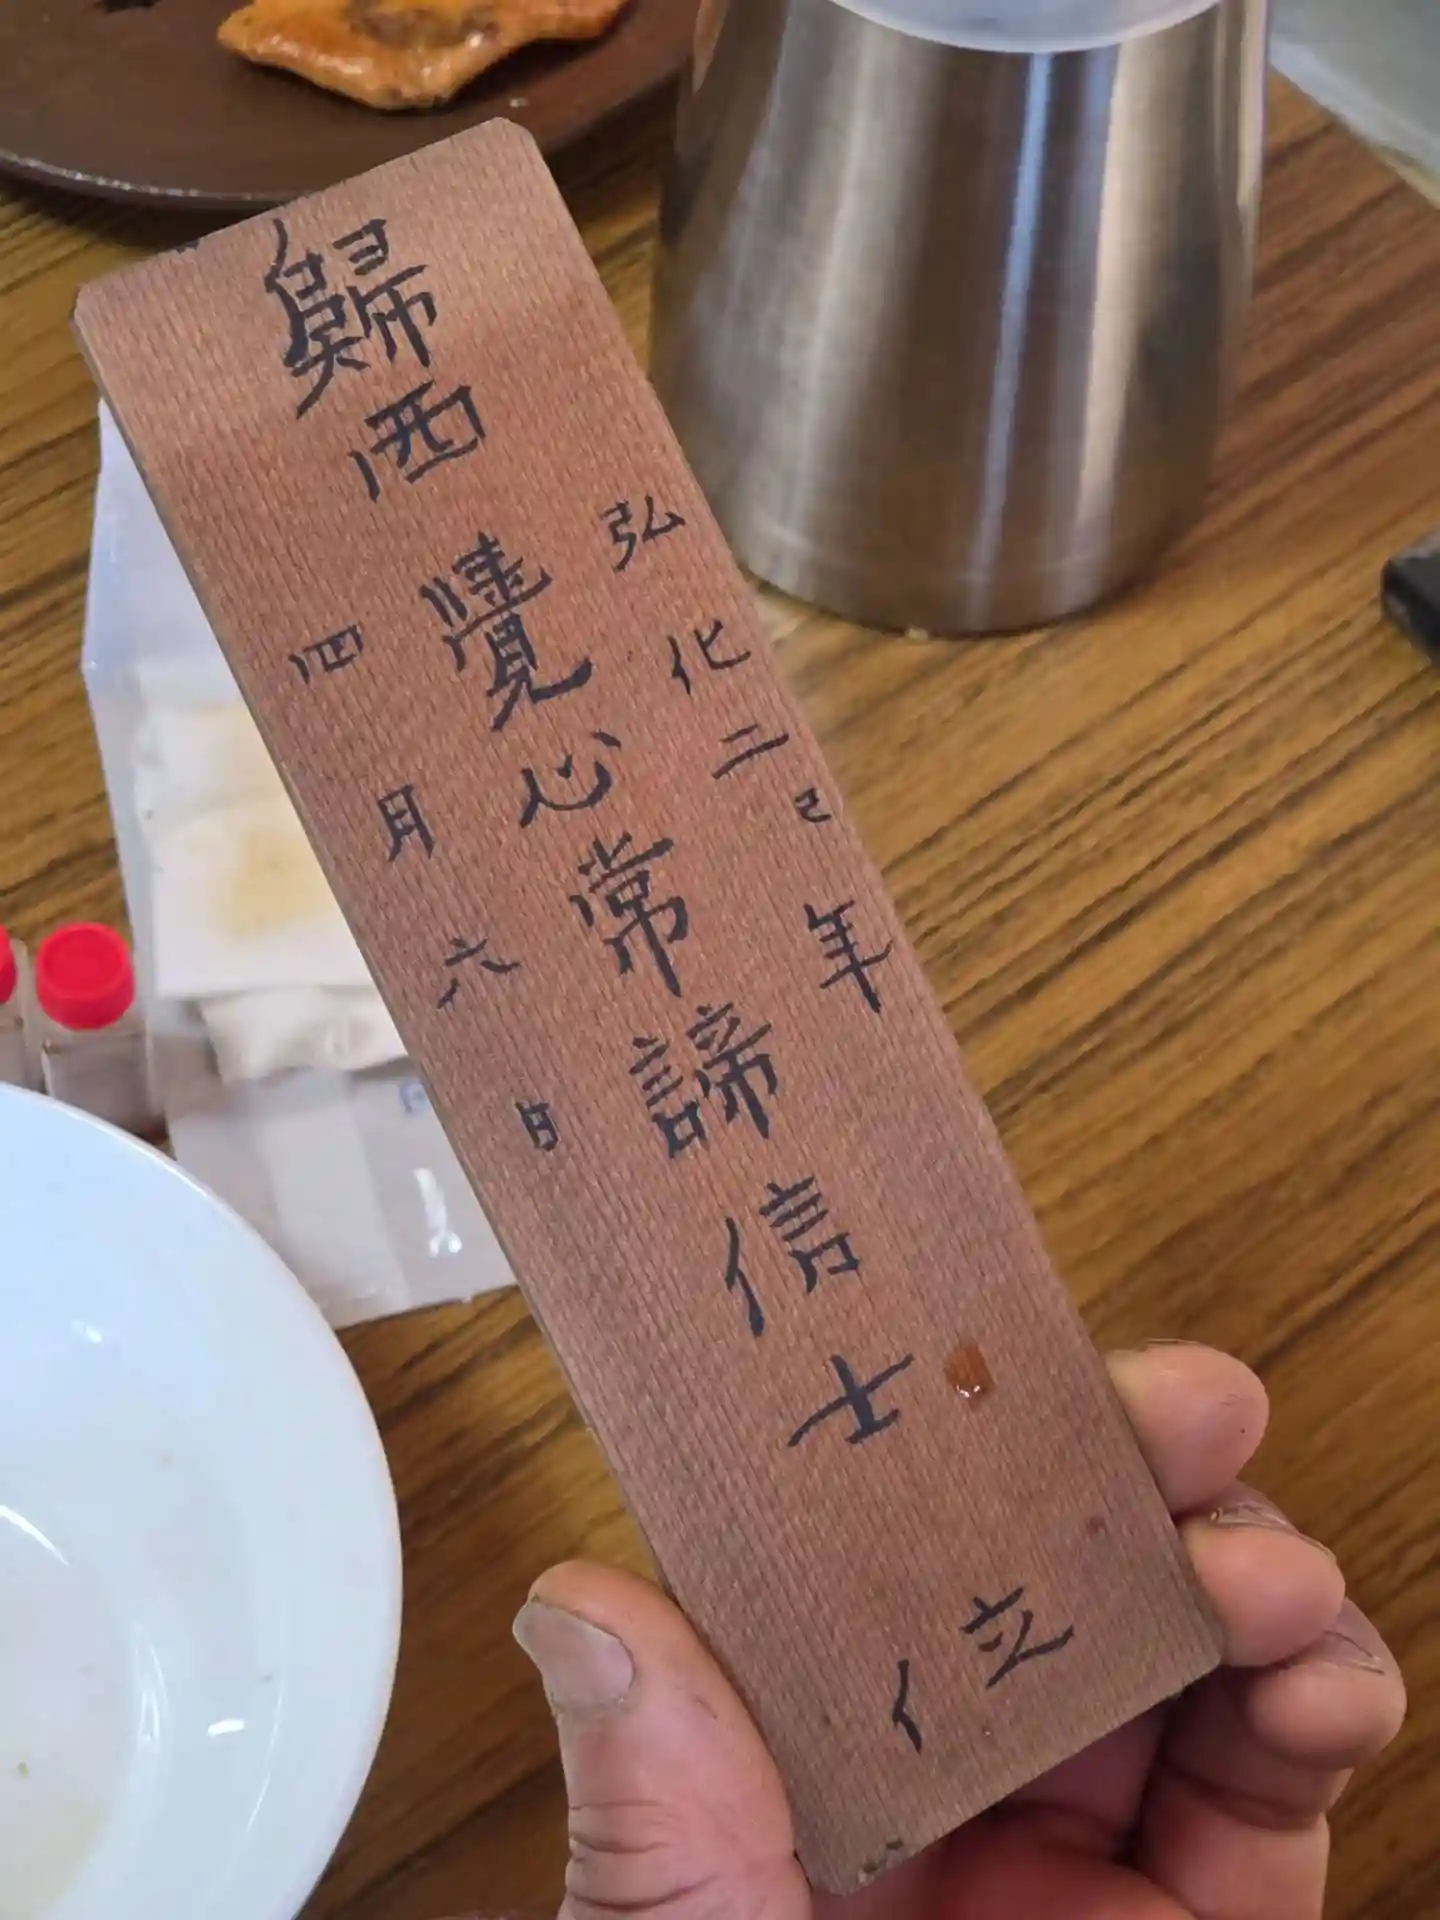 弘化二巳年
歸西 覺心常諦信士 位
四月六日